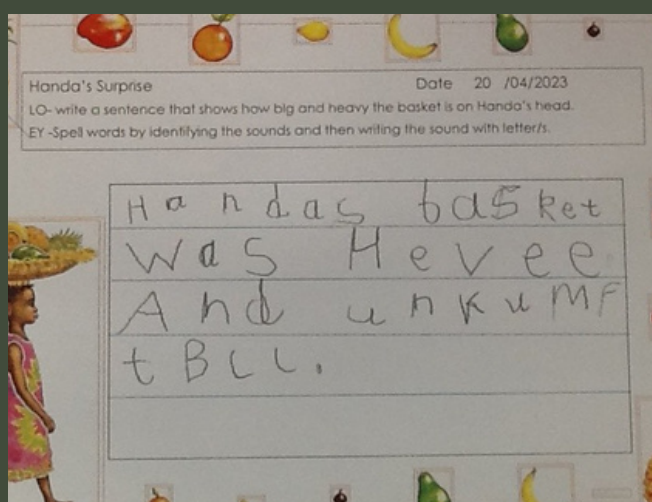 Handa's Surprise Date 20 /04/2023
LO- write a sentence that shows how big and heavy the basket is on Handa's head.
EY -Spell words by identifying the sounds and then writing the sound with letter/s.
Handas basket
Was Hevee
And unkumf
tBLL.